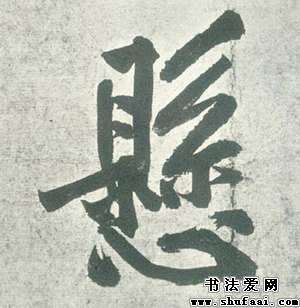 懸
书法爱网
www.shufaai.com